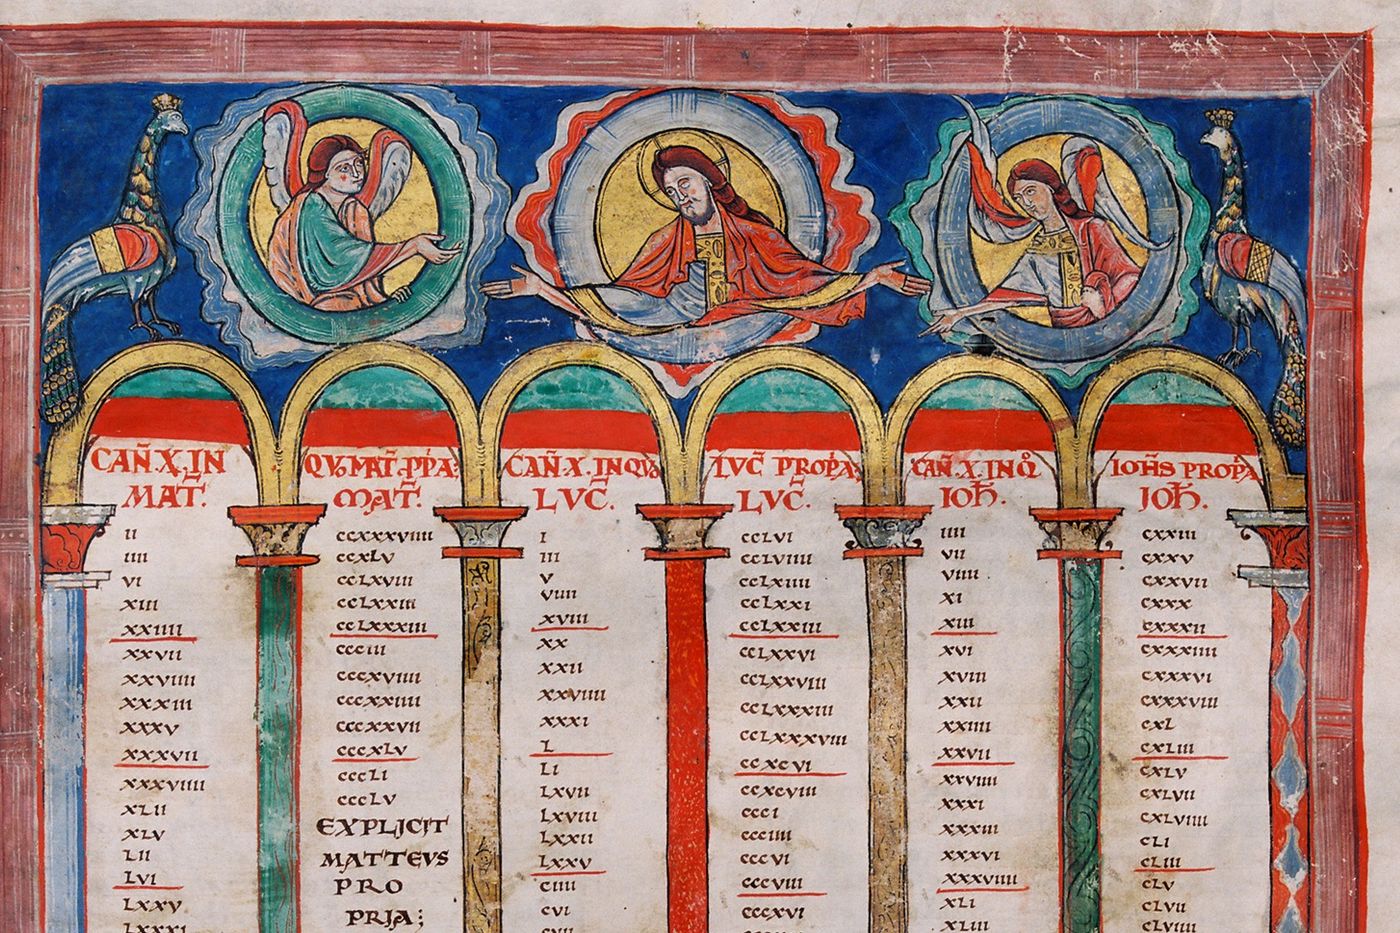 CAÑ. X, IN
MAT̃.
II
IIII
VI
XIII
XXIIII
XXVII
XXVIIII
XXXIII
XXXV
XXXVII
XXXVIIII
XLII
XLV
LII
LVI
LXXV
LXXXI
QVO MAT̃. PP̃A:
MAT̃.
CCXXXVIIII
CCXLV
CCLXVIII
CCLXXIII
CCLXXXIII
CCCIII
CCCXVIIII
CCCXXIIII
CCCXXVII
CCCXLV
CCCLI
CCCLV
EXPLICIT
MATTEVS
PRO
PRIA;
CAÑ. X. IN QVO
LVC̃.
I
III
V
VIIII
XVIII
XX
XXII
XXVIIII
XXXI
L
LI
LXVII
LXVIII
LXXII
LXXV
CIIII
CVI
LVC̃ PROP̃A;
LVC̃.
CCLVI
CCLVIIII
CCLXIIII
CCLXXI
CCLXXIII
CCLXXVI
CCLXXVIII
CCLXXXIII
CCLXXXVIII
CCXCVI
CCXCVIII
CCCI
CCCIIII
CCCVI
CCCVIII
CCCXVI
CAÑ. X. IN Q̊
IOH̃.
IIII
VII
VIIII
XI
XIII
XVI
XVIII
XXII
XXIIII
XXVII
XXVIIII
XXXI
XXXIII
XXXVI
XXXVIIII
XLI
XLIII
IOH̃S PROP̃A
IOH̃.
CXXIII
CXXV
CXXVII
CXXX
CXXXII
CXXXIIII
CXXXVI
CXXXVIII
CXL
CXLIII
CXLV
CXLVII
CXLVIIII
CLI
CLIII
CLV
CLVII
CLVIIII